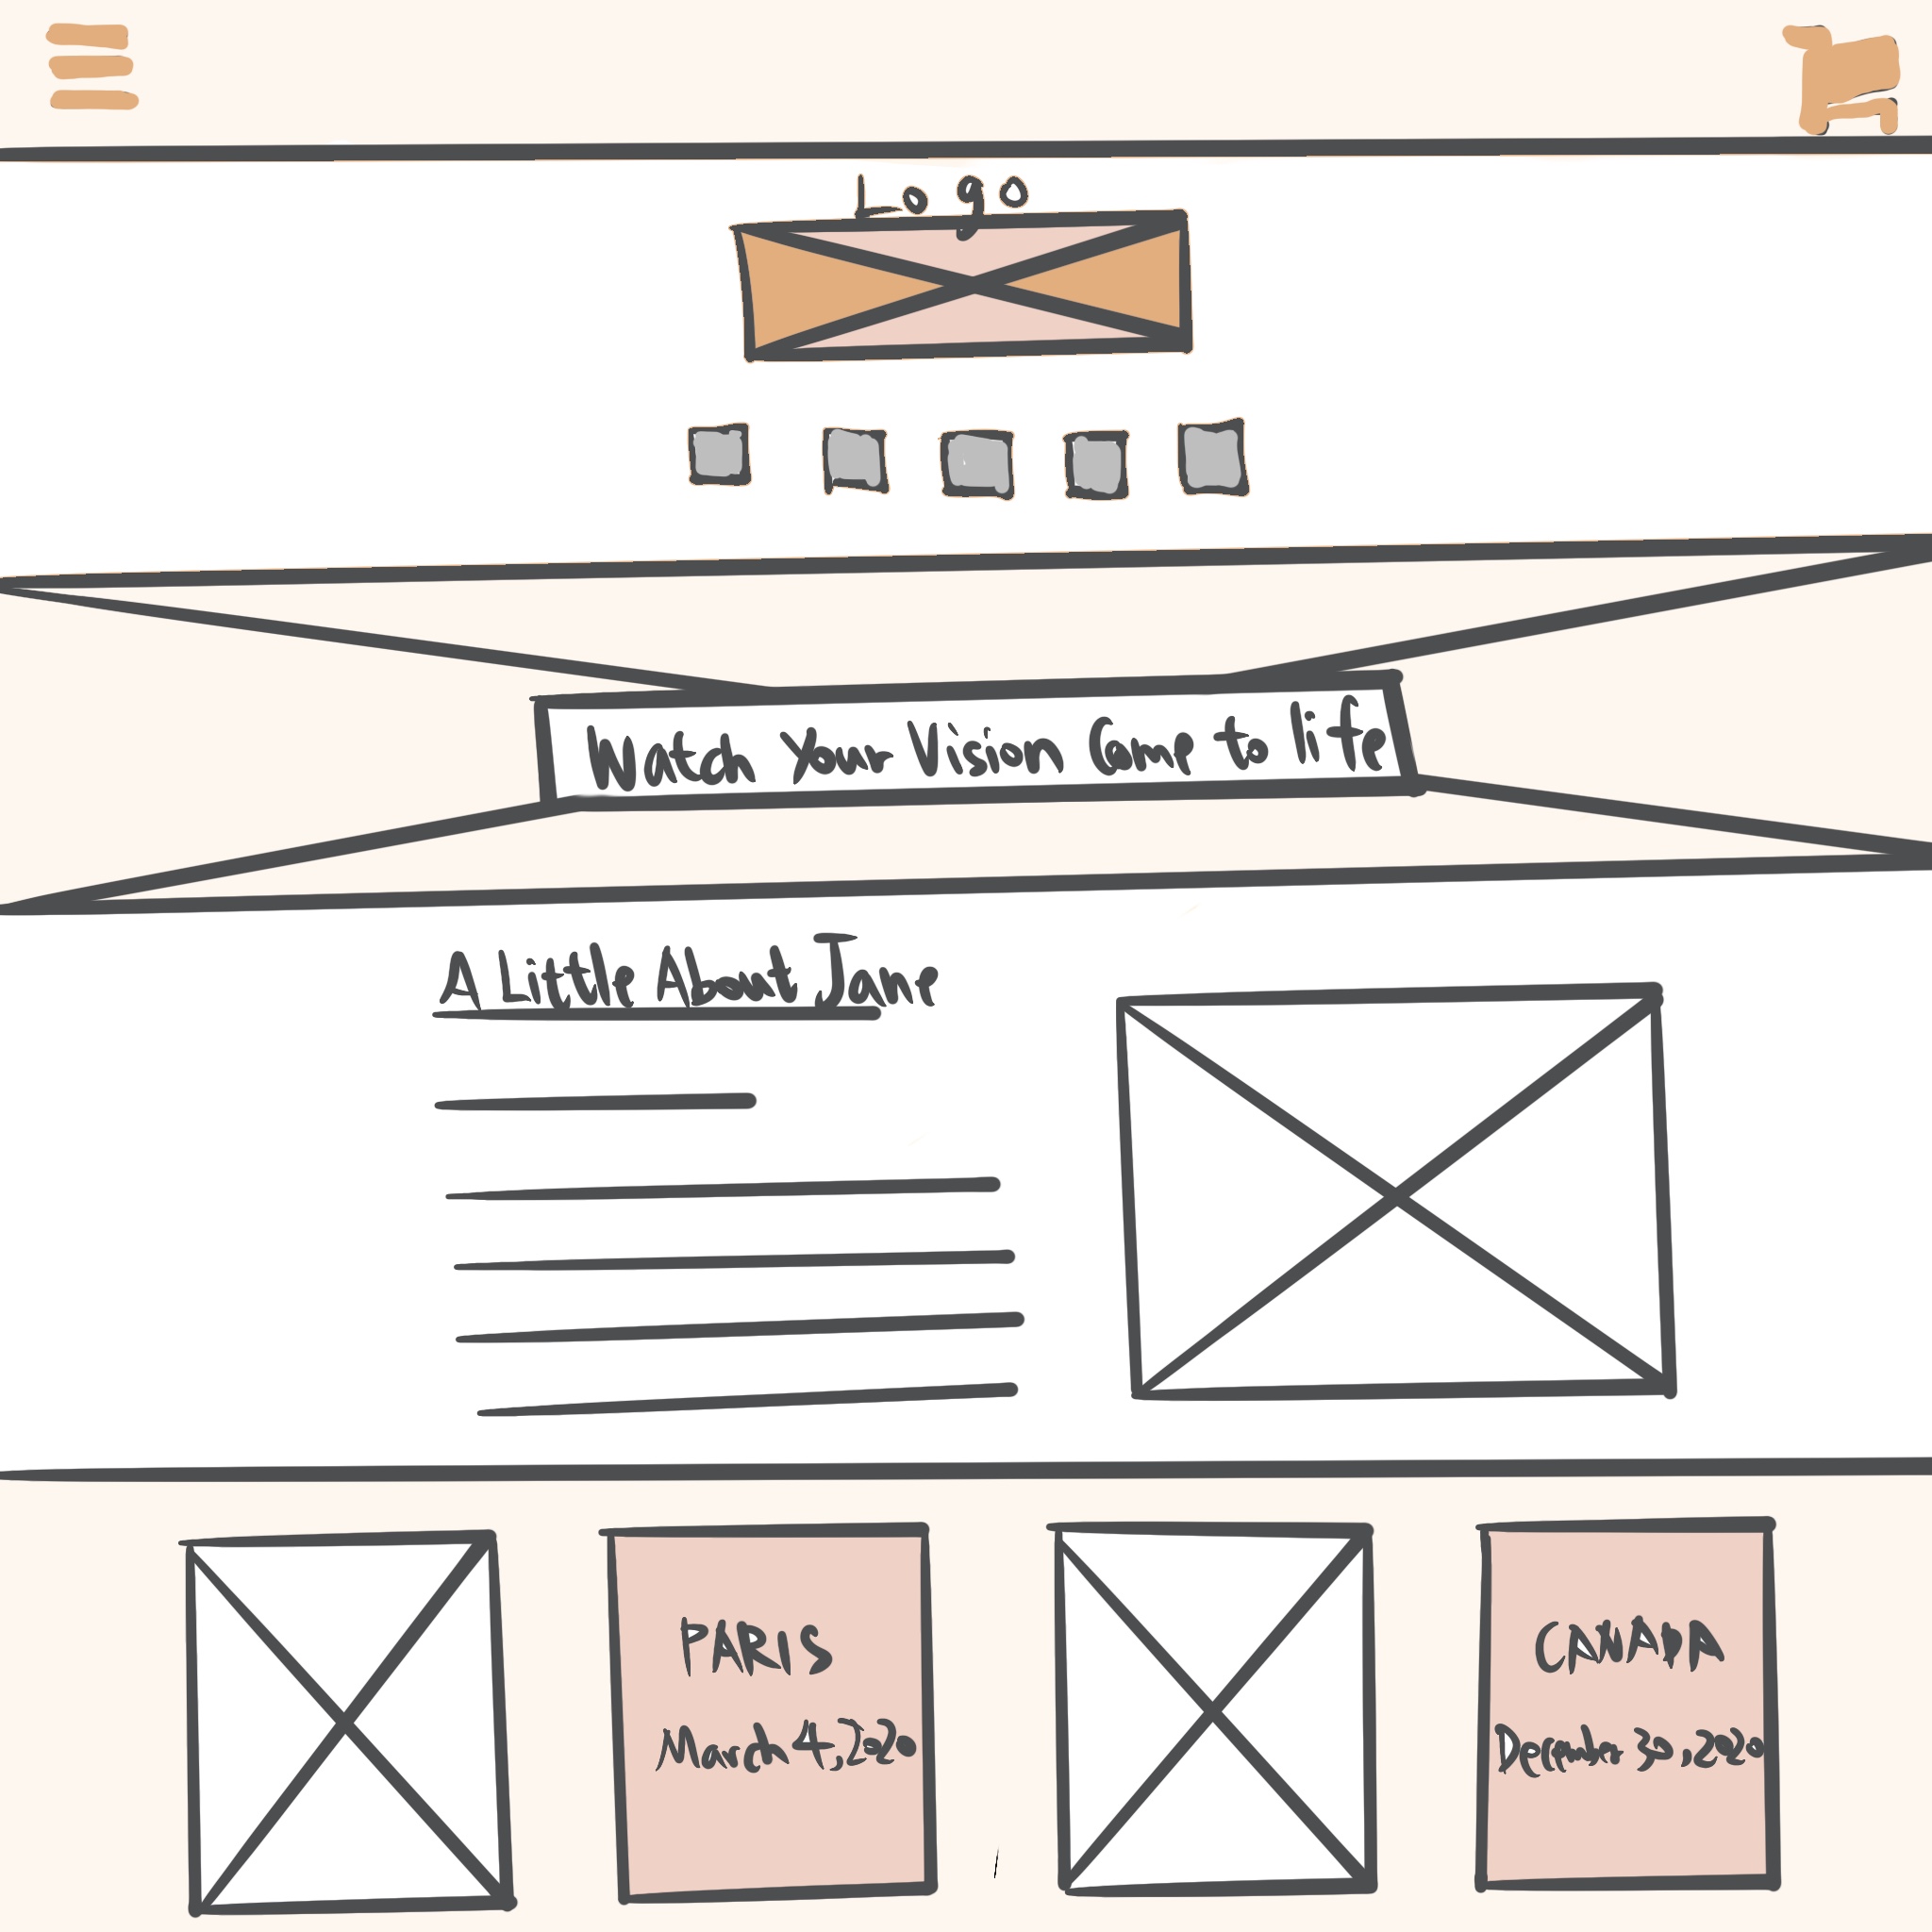 Logo
Watch Your Vision Come to life
A Little About Jane
PARIS
March 4, 2020
CANADA
December 30, 2020